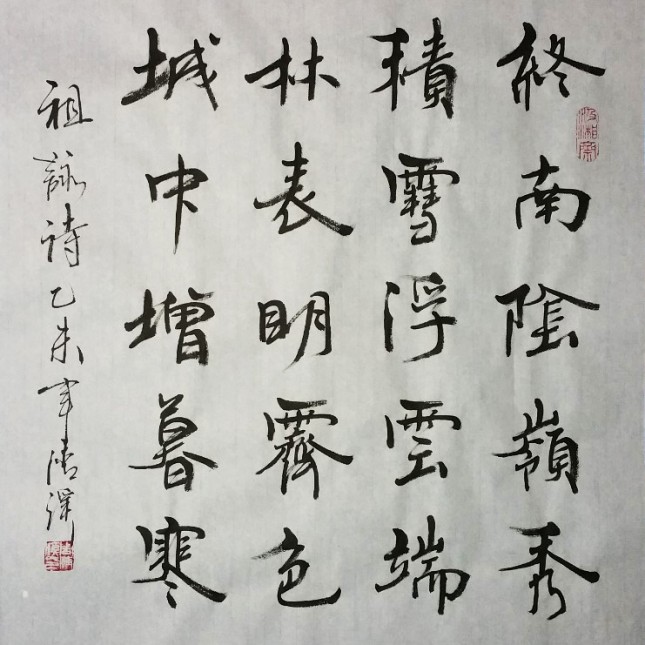 終南陰嶺秀
積雪浮雲端
林表明霽色
城中增暮寒
祖詠诗乙未年